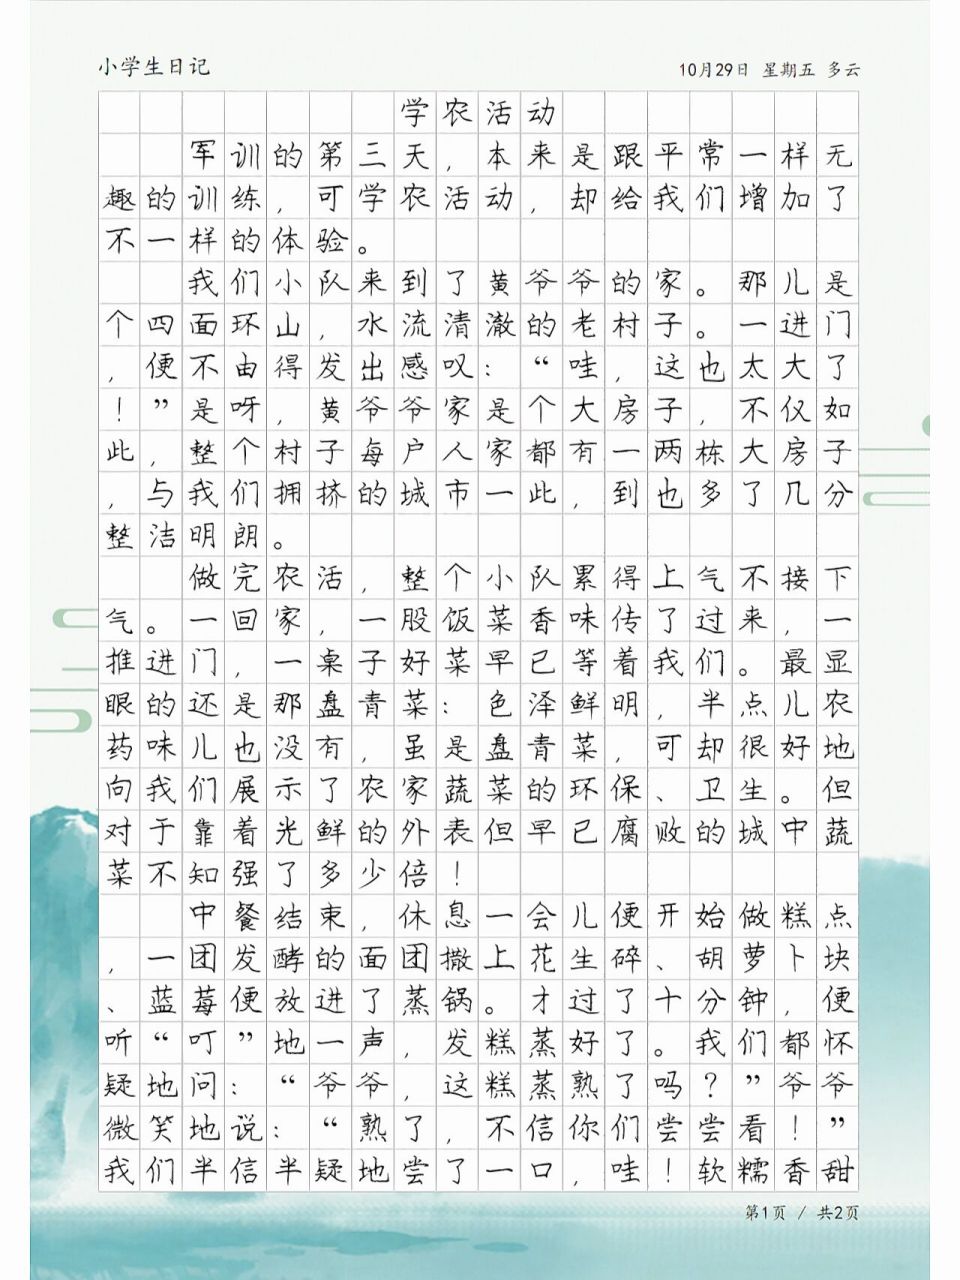 小学生日记
10月29日 星期五 多云
学农活动
军训的第三天，本来是跟平常一样无
趣的训练，可学农活动，却给我们增加了
不一样的体验。
我们小队来到了黄爷爷的家。那儿是
个四面环山，水流清澈的老村子。一进门
，便不由得发出感叹：“哇，这也太大了
！”是呀，黄爷爷家是个大房子，不仅如
此，整个村子每户人家都有一两栋大房子
，与我们拥挤的城市一此，到也多了几分
整洁明朗。
做完农活，整个小队累得上气不接下
气。一回家，一股饭菜香味传了过来，一
推进门，一桌子好菜早已等着我们。最显
眼的还是那盘青菜：色泽鲜明，半点儿农
药味儿也没有，虽是盘青菜，可却很好地
向我们展示了农家蔬菜的环保、卫生。但
对于靠着光鲜的外表但早已腐败的城中蔬
菜不知强了多少倍！
中餐结束，休息一会儿便开始做糕点
，一团发酵的面团撒上花生碎、胡萝卜块
、蓝莓便放进了蒸锅。才过了十分钟，便
听“叮”地一声，发糕蒸好了。我们都怀
疑地问：“爷爷，这糕蒸熟了吗？”爷爷
微笑地说：“熟了，不信你们尝尝看！”
我们半信半疑地尝了一口，哇！软糯香甜
第1页 / 共2页